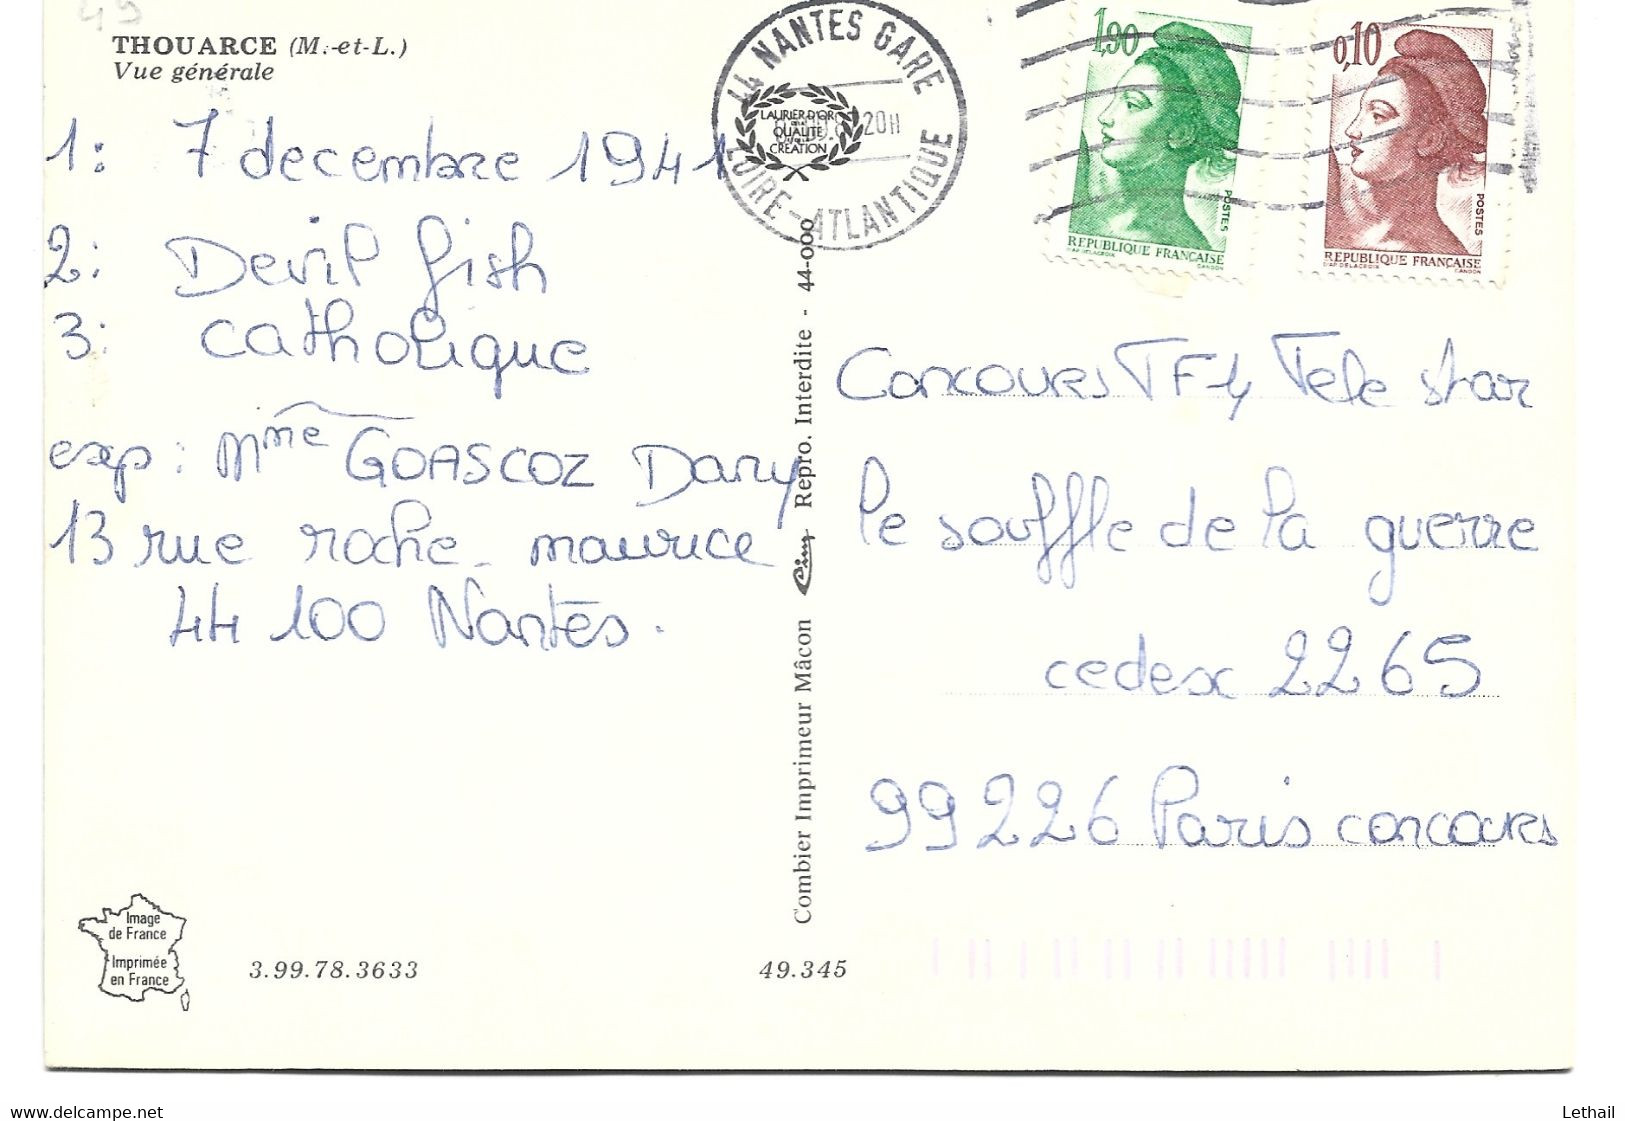 49
THOUARCE (M.-et-L.)
Vue générale
44 NANTES GARE
LOIRE-ATLANTIQUE
20H
LAURIER D'OR
DE LA
QUALITE
CREATION
1,90
POSTES
REPUBLIQUE FRANCAISE
D'AP. DELACROIX GANDON
0,10
POSTES
REPUBLIQUE FRANCAISE
D'AP. DELACROIX GANDON
1: 7 decembre 1941
2: Devil fish
3: catholique
exp: Mme GOASCOZ Dany
13 rue roche maurice
44 100 Nantes.
Combier Imprimeur Mâcon Cim Repro. Interdite - 44-000
Concours TF1 Tele star
le souffle de la guerre
cedex 2265
99226 Paris concours
Image
de France
Imprimée
en France
3.99.78.3633
49.345
www.delcampe.net
Lethail